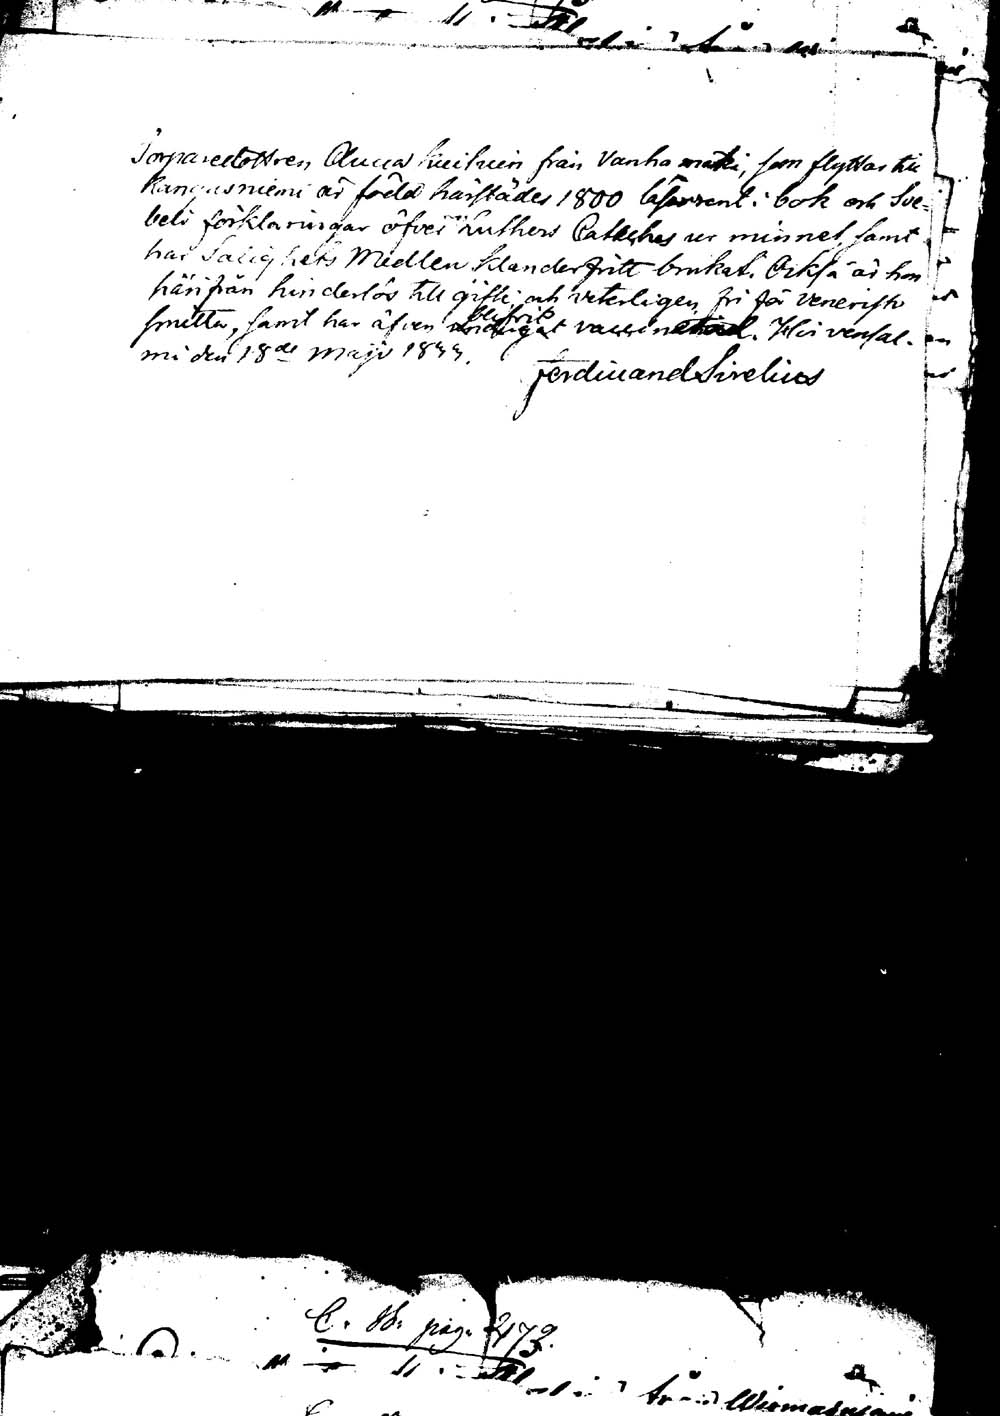 Torparedottren Anna Kuikuin från Vanhamäki, som flyttar till
Kangasniemi är född härstädes 1800 läser rent i bok och Sve-
beli förklaringar öfver Luthers Cateches ur minnet samt
har Salighets Medlen klanderfritt brukat. Också är hon
härifrån hinderlös till gifte och veterligen fri för venerisk
smitta, samt har äfven blifvit vaccinerad. Hirvensal-
mi den 18de Maji 1833.
Ferdinand Sirelius
C. B. pag. 273.